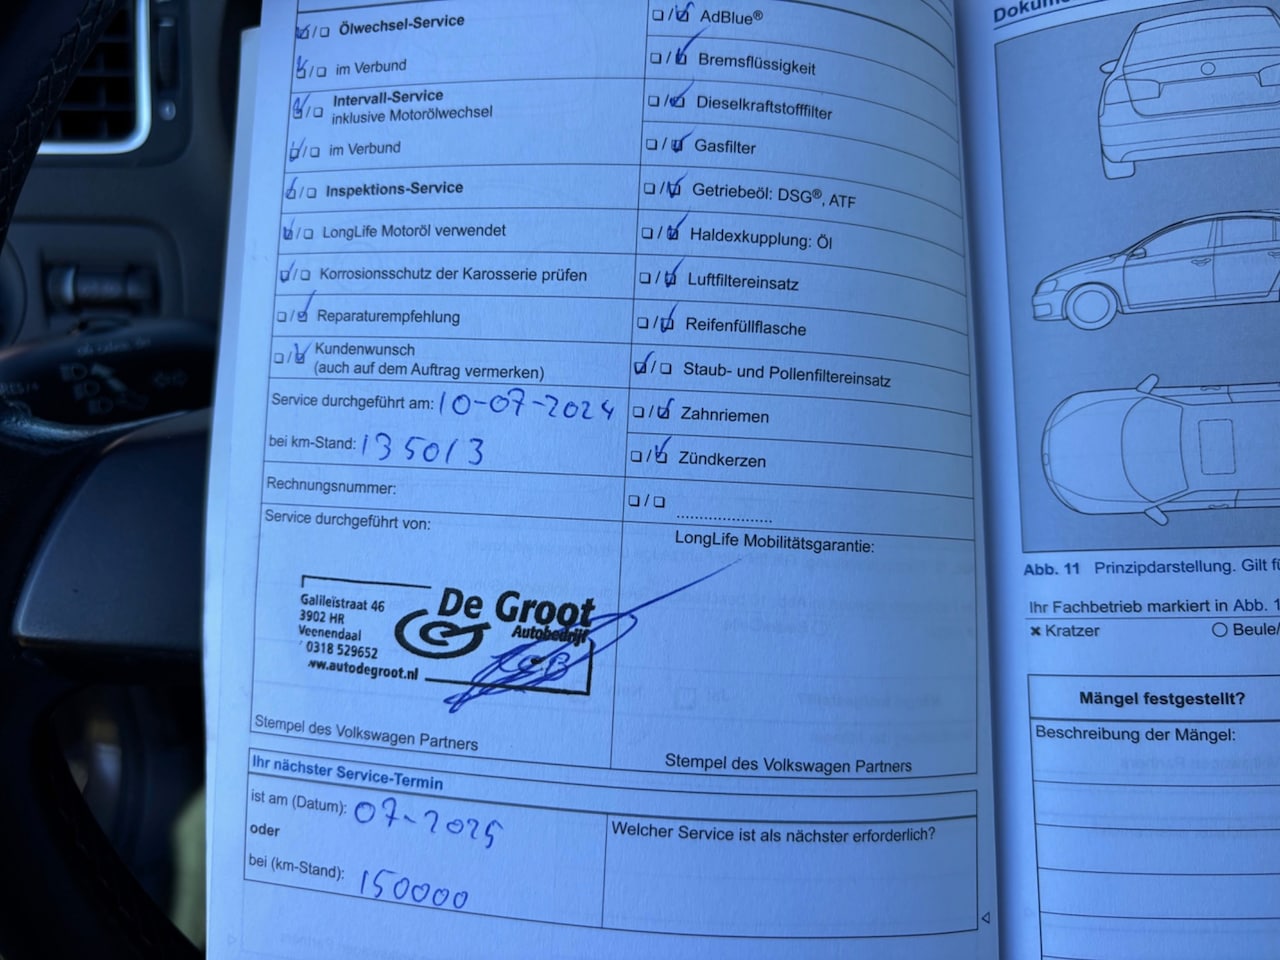 Ölwechsel-Service
im Verbund
Intervall-Service
inklusive Motorölwechsel
im Verbund
Inspektions-Service
LongLife Motoröl verwendet
Korrosionsschutz der Karosserie prüfen
Reparaturempfehlung
Kundenwunsch
(auch auf dem Auftrag vermerken)
Service durchgeführt am: 10-07-2024
bei km-Stand: 135013
Rechnungsnummer:
Service durchgeführt von:
Galileïstraat 46
3902 HR
Veenendaal
0318 529652
ww.autodegroot.nl
De Groot
Autobedrijf
Stempel des Volkswagen Partners
AdBlue®
Bremsflüssigkeit
Dieselkraftstofffilter
Gasfilter
Getriebeöl: DSG®, ATF
Haldexkupplung: Öl
Luftfiltereinsatz
Reifenfüllflasche
Staub- und Pollenfiltereinsatz
Zahnriemen
Zündkerzen
....................
LongLife Mobilitätsgarantie:
Stempel des Volkswagen Partners
Ihr nächster Service-Termin
ist am (Datum): 07-2025
oder
bei (km-Stand): 150000
Welcher Service ist als nächster erforderlich?
Abb. 11 Prinzipdarstellung. Gilt
Ihr Fachbetrieb markiert in Abb. 1
× Kratzer
Beule/
Mängel festgestellt?
Beschreibung der Mängel: